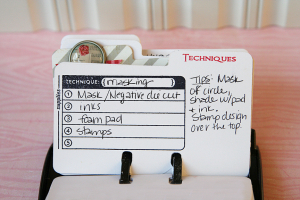 TECHNIQUES
TECHNIQUE: (masking)
supplies
1 Mask/Negative die cut
2 inks
3 foam pad
4 stamps
5
Tips: Mask
of circle,
shade w/pad
+ ink.
Stamp design
over the top.